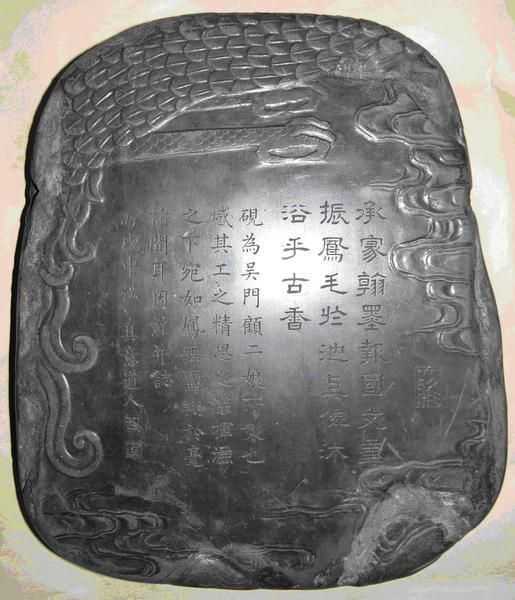 承家翰墨報國文章
振鳳毛於池上俾沐
浴乎古香
硯為吳門顧二娘所製也
感其工之精思之深揮灑
之下宛如鳳舞鸞翔於毫
楮間耳因銘并誌
丙戌中秋 真意道人